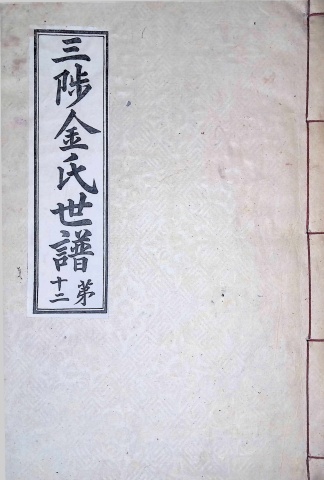 三陟金氏世譜
第十二